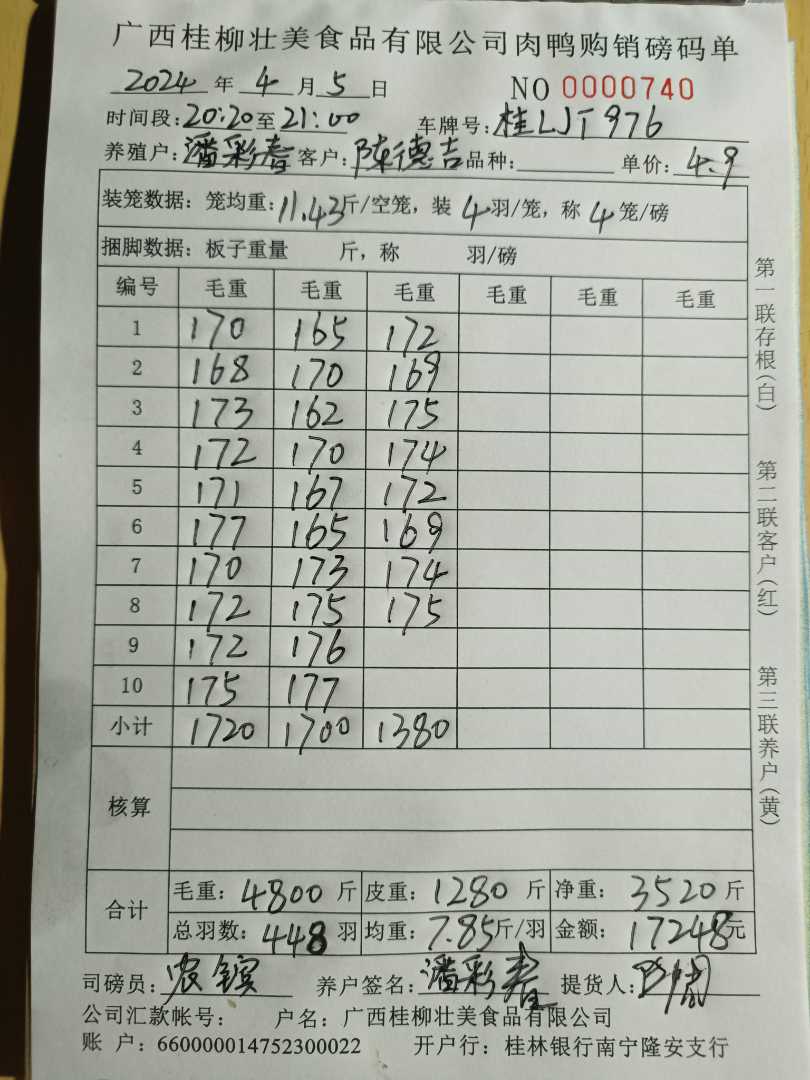 广西桂柳壮美食品有限公司肉鸭购销磅码单
2024 年 4 月 5 日 NO 0000740
时间段:20:20至21:00 车牌号:桂LJT976
养殖户:潘彩春 客户:陈德吉 品种: 单价:4.9
装笼数据: 笼均重:11.43斤/空笼, 装 4 羽/笼, 称 4 笼/磅
捆脚数据: 板子重量 斤, 称 羽/磅
编号 毛重 毛重 毛重 毛重 毛重 毛重
1 170 165 172
2 168 170 169
3 173 162 175
4 172 170 174
5 171 167 172
6 177 165 169
7 170 173 174
8 172 175 175
9 172 176
10 175 177
小计 1720 1700 1380
核算
合计
毛重: 4800 斤 皮重: 1280 斤 净重: 3520 斤
总羽数: 448 羽 均重: 7.85斤/羽 金额: 17248元
司磅员: 农镔 养户签名: 潘彩春 提货人:
公司汇款帐号: 户名: 广西桂柳壮美食品有限公司
账 户: 660000014752300022 开户行: 桂林银行南宁隆安支行
第一联存根(白)
第二联客户(红)
第三联养户(黄)